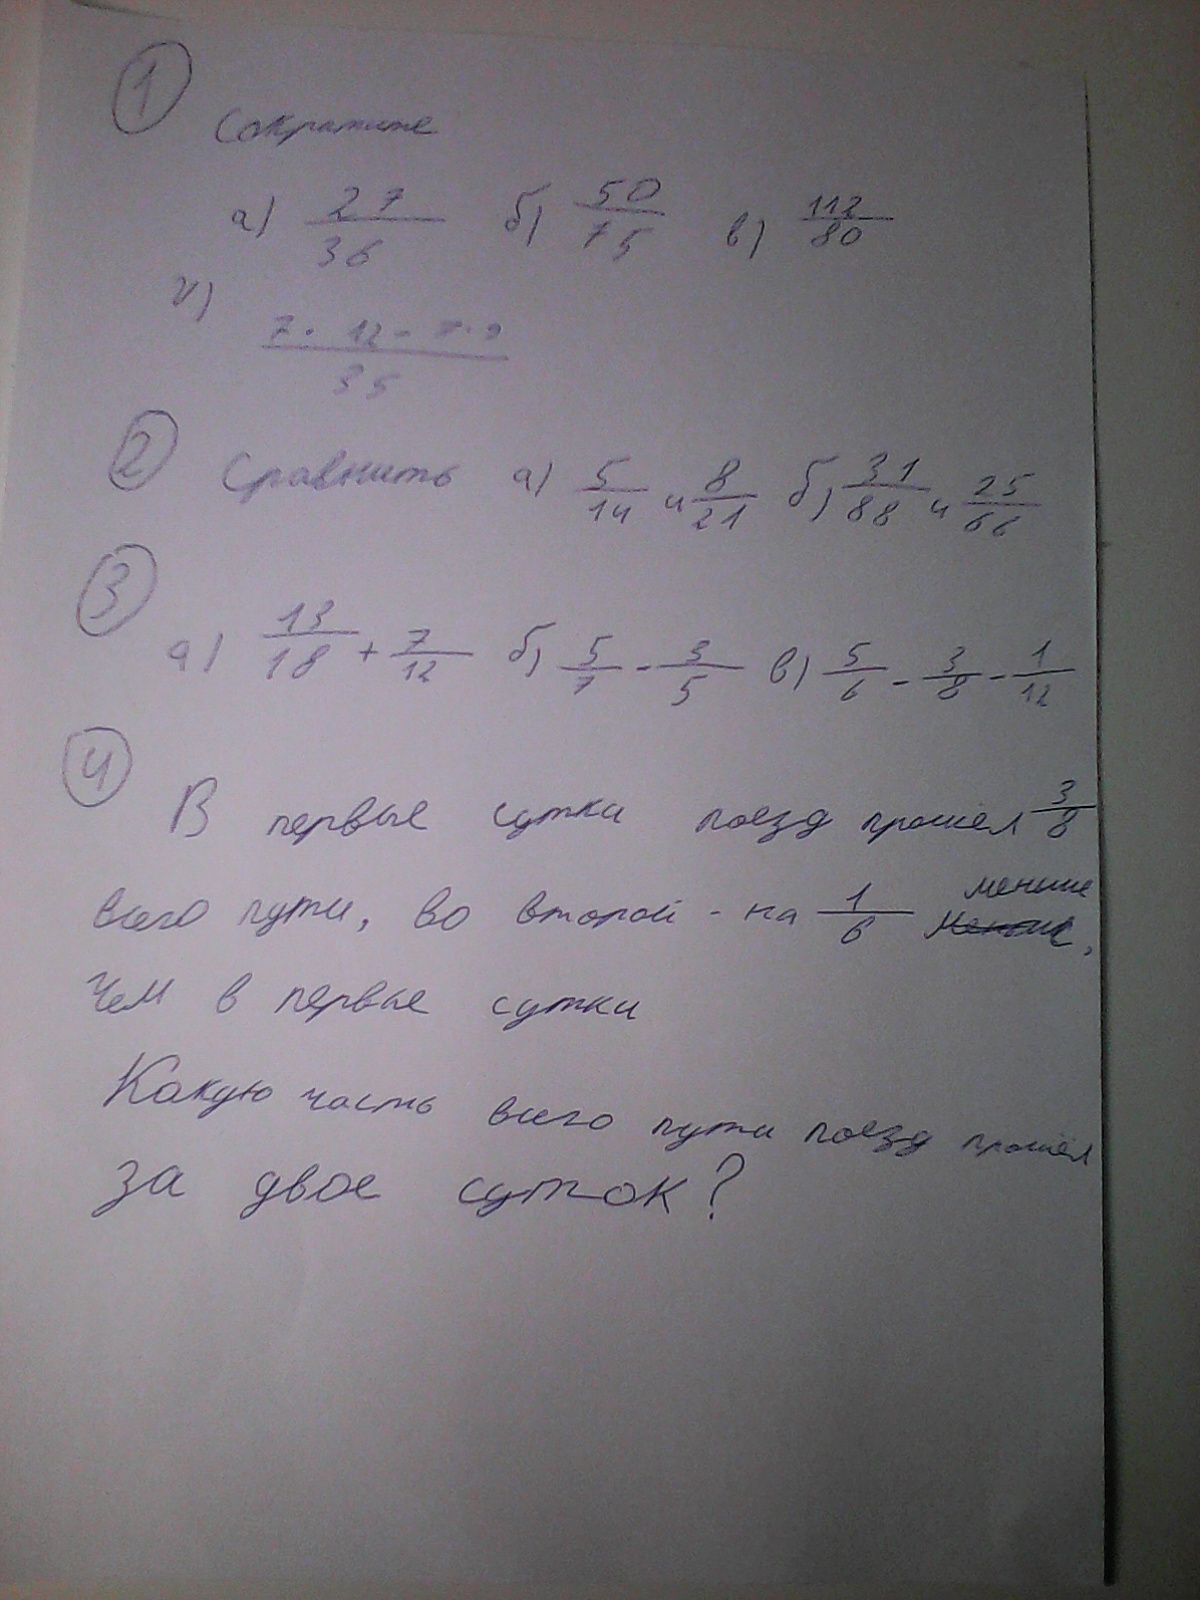 1
Сократите
а) 27/36 б) 50/75 в) 112/80
г)
7 · 12 - 7 · 2 / 35
2 Сравнить а) 5/14 и 8/21 б) 31/88 и 25/66
3
а) 13/18 + 7/12 б) 5/7 - 3/5 в) 5/6 - 3/8 - 1/12
4
В первые сутки поезд прошёл 3/8
всего пути, во второй - на 1/6 меньше,
чем в первые сутки
Какую часть всего пути поезд прошёл
за двое суток?